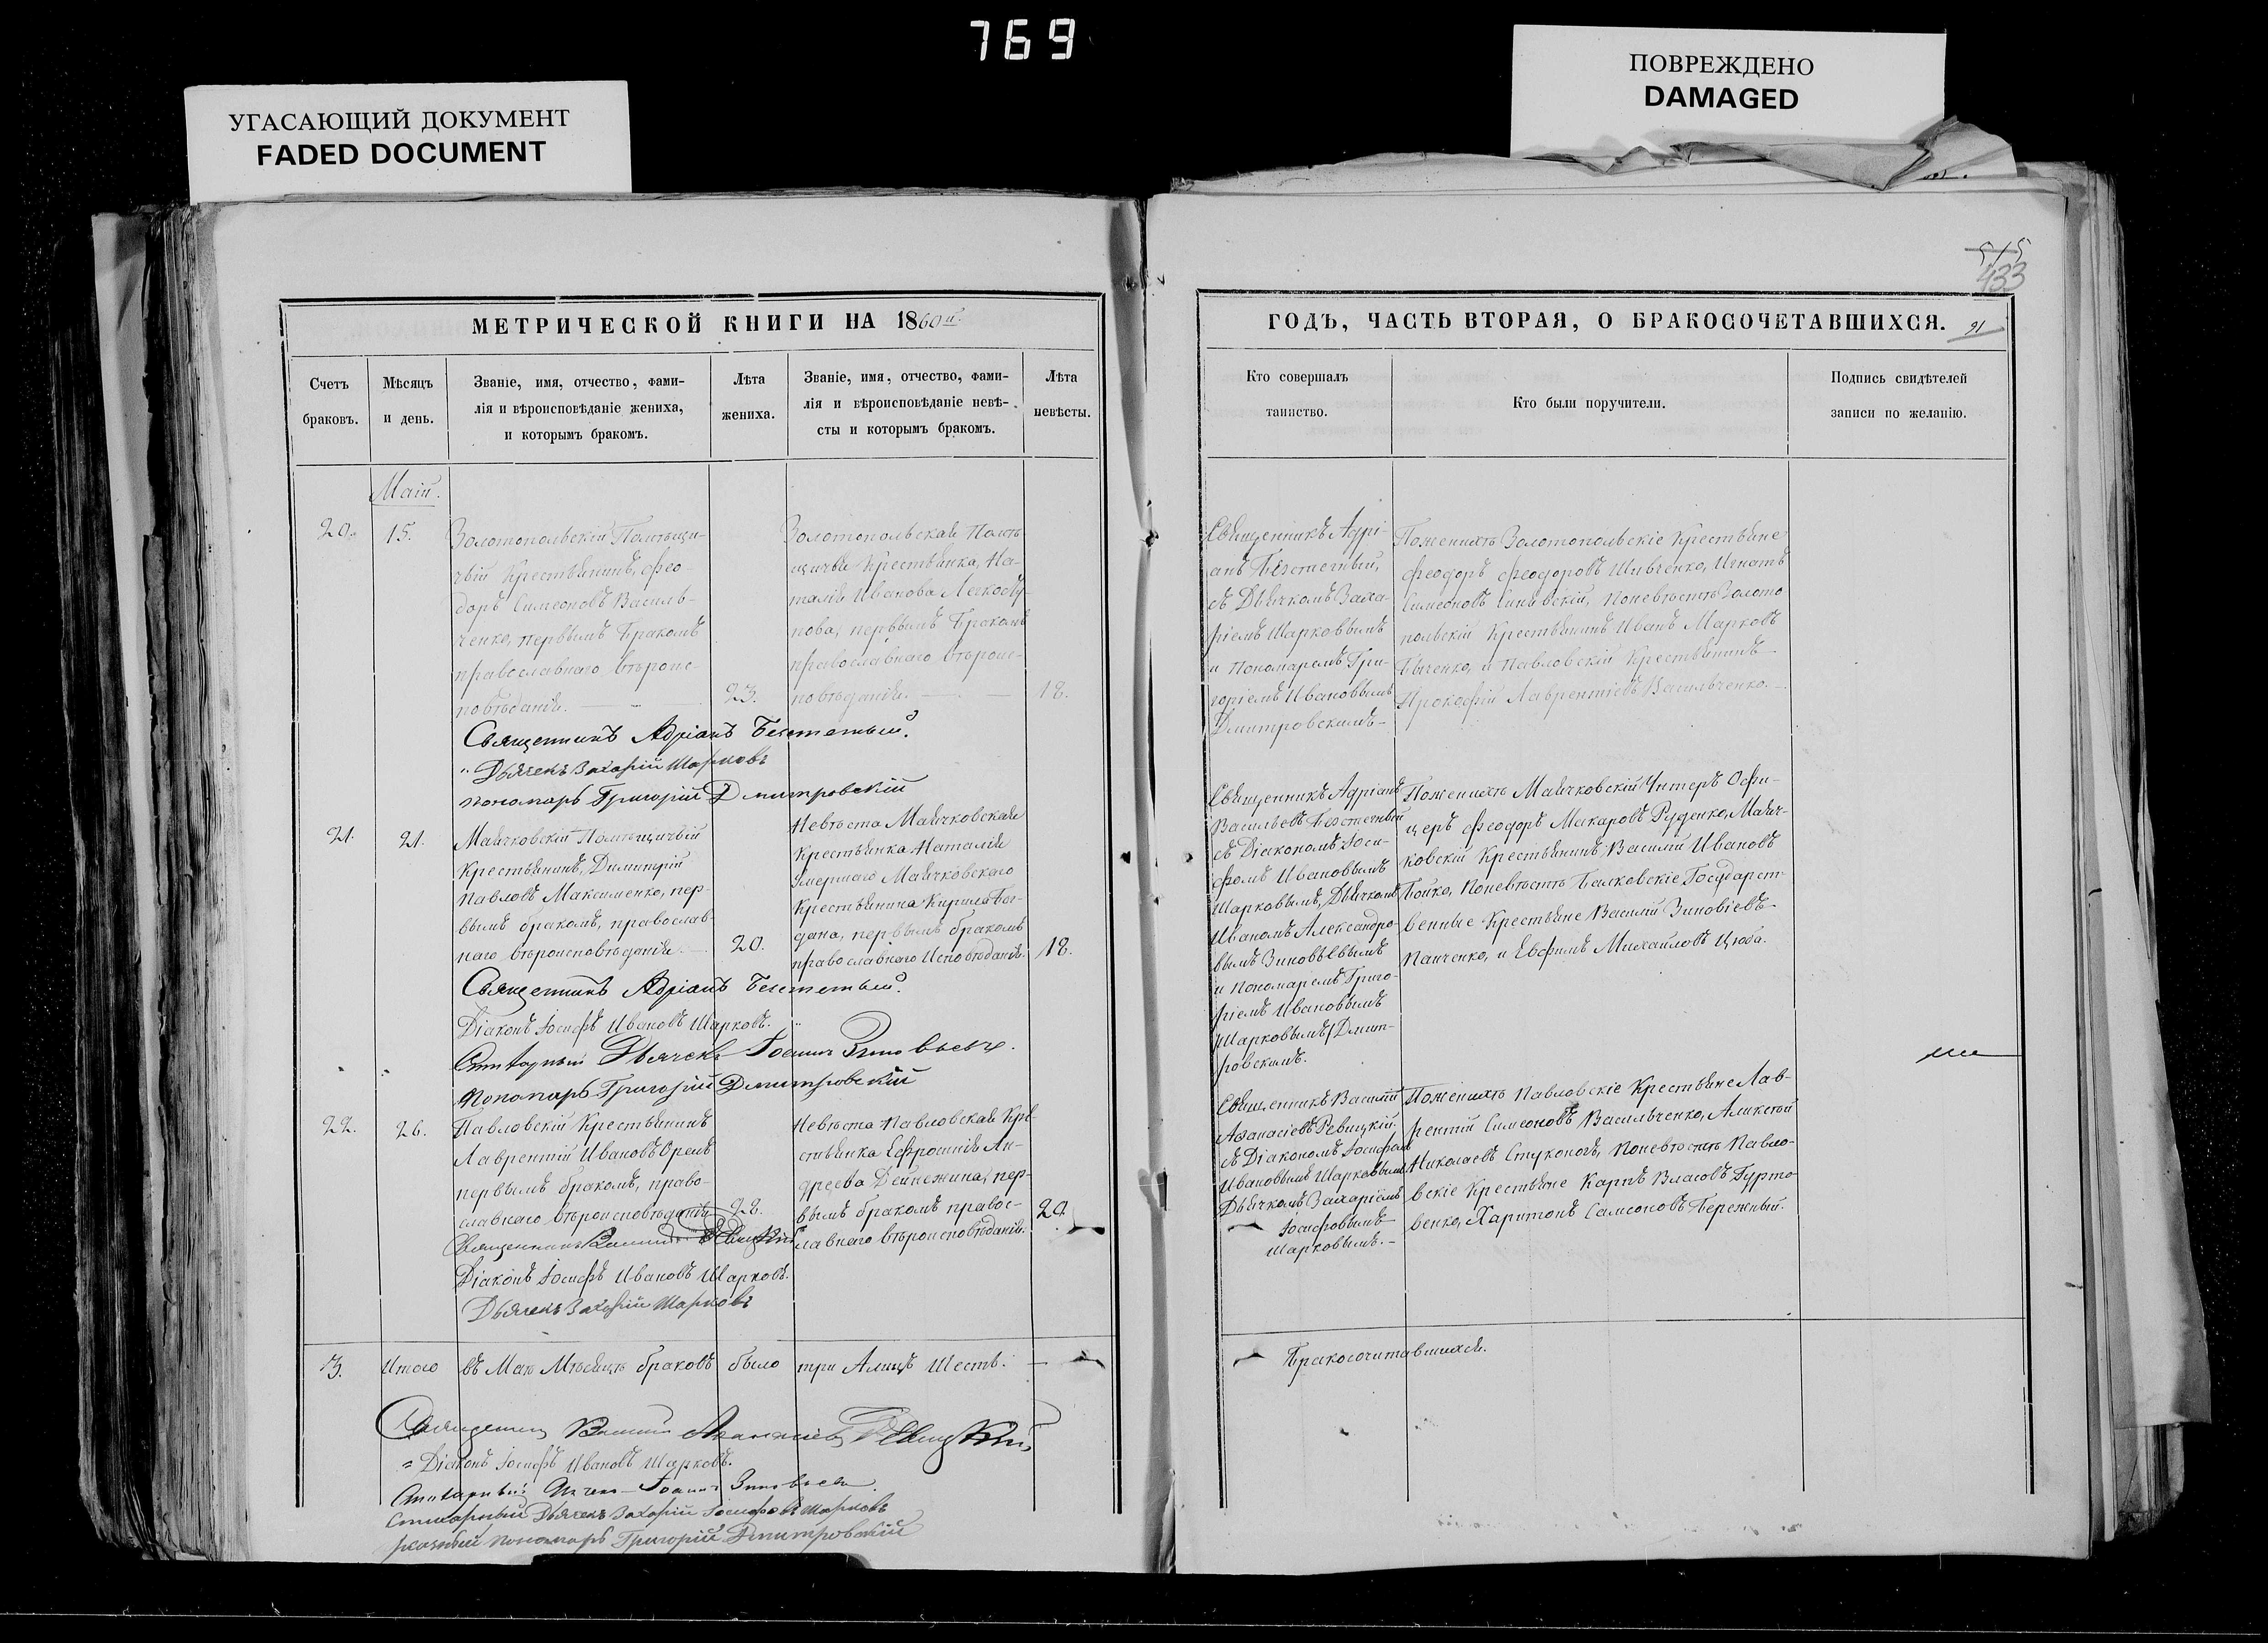 769
УГАСАЮЩИЙ ДОКУМЕНТ
FADED DOCUMENT
ПОВРЕЖДЕНО
DAMAGED
515
433
91
МЕТРИЧЕСКОЙ КНИГИ НА 1860й
Счетъ браковъ.
Мѣсяцъ и день.
Званіе, имя, отчество, фами-
лія и вѣроисповѣданіе жениха,
и которымъ бракомъ.
Лѣта жениха.
Званіе, имя, отчество, фами-
лія и вѣроисповѣданіе невѣ-
сты и которымъ бракомъ.
Лѣта невѣсты.
Маій.
20.
15.
Золотопольскій Помѣщи-
чій Крестьянинъ, Фео-
доръ Симеоновъ Василь-
ченко, первымъ бракомъ
православнаго вѣроис-
повѣданія.
23.
Золотопольская Помѣ-
щичья Крестьянка, На-
талія Иванова Легкоду-
пова, первымъ бракомъ
православнаго вѣроис-
повѣданія.
18.
Священникъ Адріанъ
Дьячекъ Захарій Шарковъ
пономарь Григорій Дмитровскій
21.
21.
Маячковскій Помѣщичій
Крестьянинъ, Димитрій
Павловъ Максименко, пер-
вымъ бракомъ, православ-
наго вѣроисповѣданія.
20.
Невѣста Маячковская
Крестьянка Наталія
умершаго Маячковскаго
Крестьянина Кирила Бог-
дана, первымъ бракомъ
православнаго Исповѣданія.
18.
Священникъ Адріанъ
Діаконъ Іосифъ Ивановъ Шарковъ.
Дьячекъ Іоаннъ Зиновьевъ.
Пономарь Григорій Дмитровскій
22.
26.
Павловскій Крестьянинъ
Лаврентій Ивановъ Орелъ
первымъ бракомъ, право-
славнаго вѣроисповѣданія
22.
Невѣста Павловская Кре-
стьянка Ефросинія Ан-
дреева Дейнежина, пер-
вымъ бракомъ правос-
лавнаго вѣроисповѣданія.
20.
Священникъ Василій Ревицкій
Діаконъ Іосифъ Ивановъ Шарковъ.
Дьячекъ Захарій Шарковъ
3.
Итого въ Маю Мѣсяцѣ браковъ было три А лицъ Шесть.
Священникъ Василій Афанасіевъ Ревицкій
Діаконъ Іосифъ Ивановъ Шарковъ.
Іоаннъ Зиновьевъ.
Стихарный Дьячекъ Захарій Іосифовъ Шарковъ
пономарь Григорій Дмитровскій
ГОДЪ, ЧАСТЬ ВТОРАЯ, О БРАКОСОЧЕТАВШИХСЯ.
Кто совершалъ таинство.
Кто были поручители.
Подпись свидѣтелей
записи по желанію.
Священникъ Адрі-
анъ
съ Дьячкомъ Заха-
ріемъ Шарковымъ
и пономаремъ Гри-
горіемъ Ивановымъ
Дмитровскимъ
Поженихѣ Золотопольскіе Крестьяне
Феодоръ Феодоровъ Шивченко, Игнатъ
Симеоновъ Синявскій, Поневѣстѣ Золото
польскій Крестьянинъ Иванъ Марковъ
Быченко, и Павловскій Крестьянинъ
Прокофій Лаврентіевъ Васильченко.
Священникъ Адріанъ
Васильевъ
съ Діакономъ Іоси-
фомъ Ивановымъ
Шарковымъ, Дьячкомъ
Иваномъ Александро-
вымъ Зиновьевымъ
и Пономаремъ Григо-
ріемъ Ивановымъ
Шарковымъ Дмит-
ровскимъ.
Поженихѣ Маячковскій Унтеръ Офи-
церъ Феодоръ Макаровъ Руденко, Маяч-
ковскій Крестьянинъ Василій Ивановъ
Бойко, Поневѣстѣ Балковскіе Государст-
венные Крестьяне Василій Зиновіевъ
Панченко, и Евфимъ Михайловъ Цюба.
Священникъ Василій
Афанасіевъ Ревицкій
съ Діакономъ Іосифомъ
Ивановымъ Шарковымъ
Дьячкомъ Захаріемъ
Іосифовымъ
Шарковымъ.
Поженихѣ Павловскіе Крестьяне Лав-
рентій Симеоновъ Васильченко, Алексѣй
Николаевъ Стуконогъ, Поневѣстѣ Павло-
вскіе Крестьяне Карпъ Власовъ Гурто
венко, Харитонъ Самсоновъ Бережный.
Бракосочитавшихся.